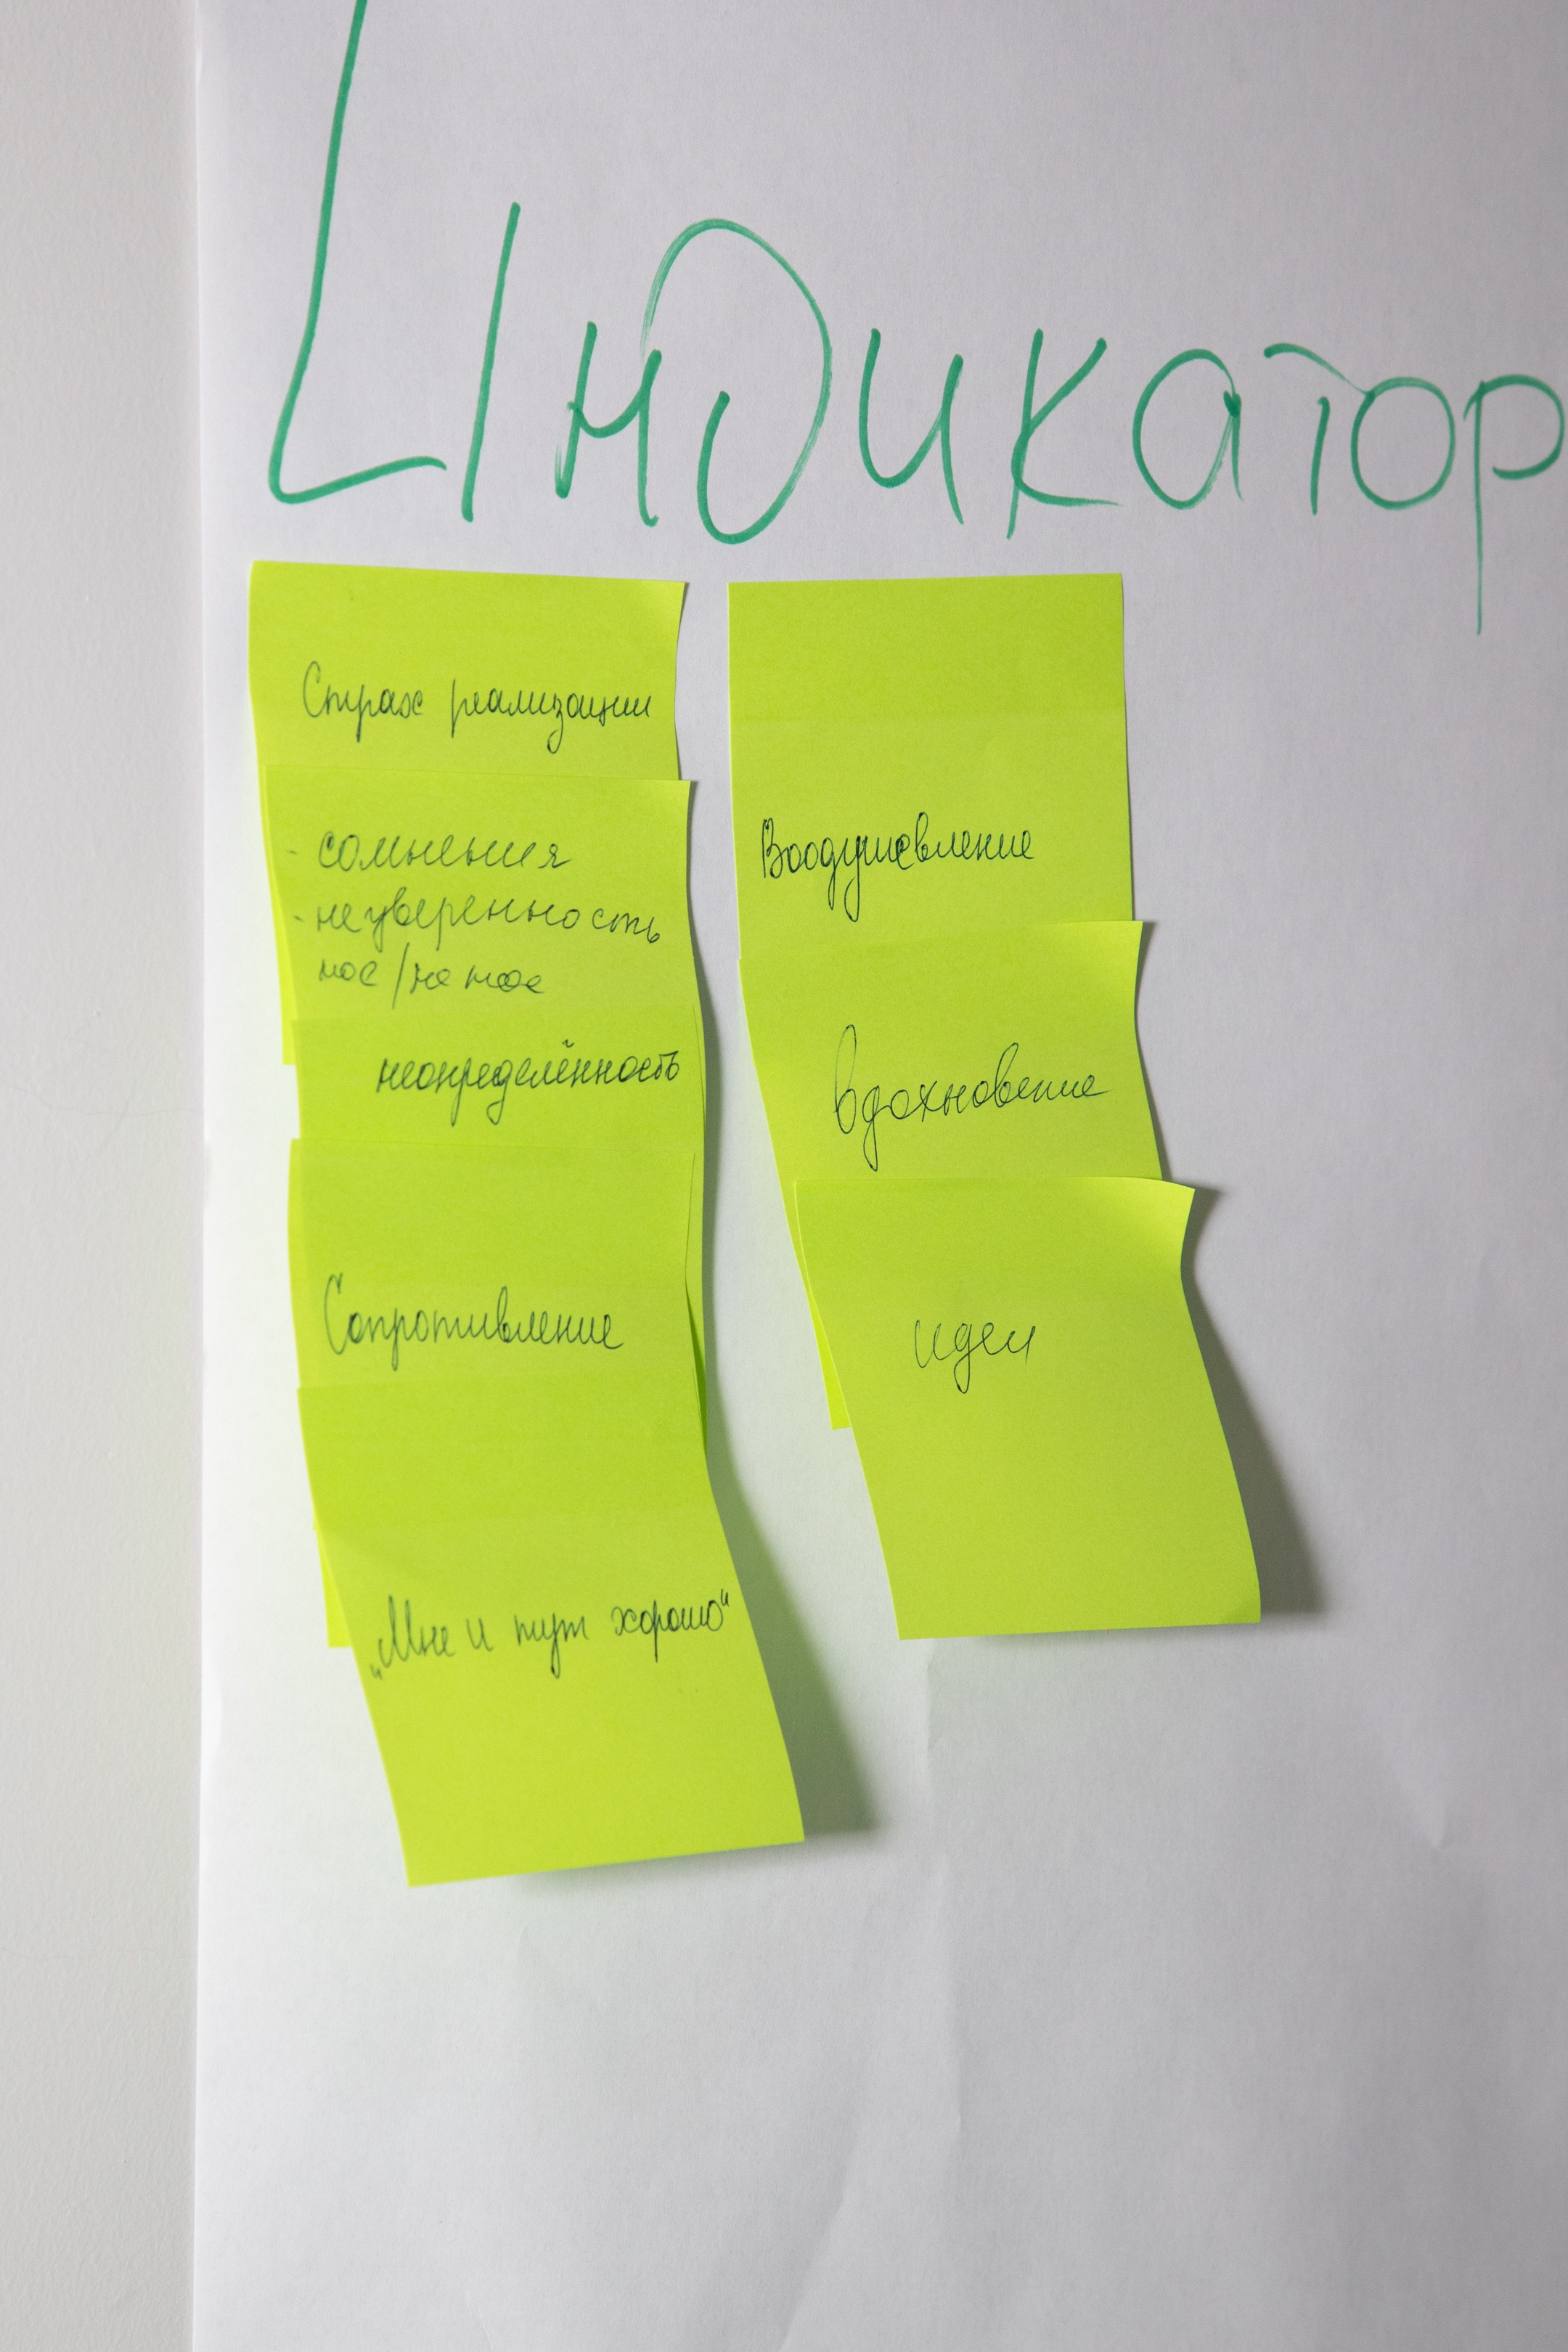 Индикатор
Страх реализации
- сомнения
- неуверенность
мое/не мое
неопределённость
Сопротивление
„Мне и тут хорошо“
Воодушевление
вдохновение
идеи